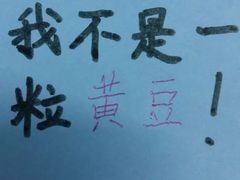 我不是一
粒黄豆！